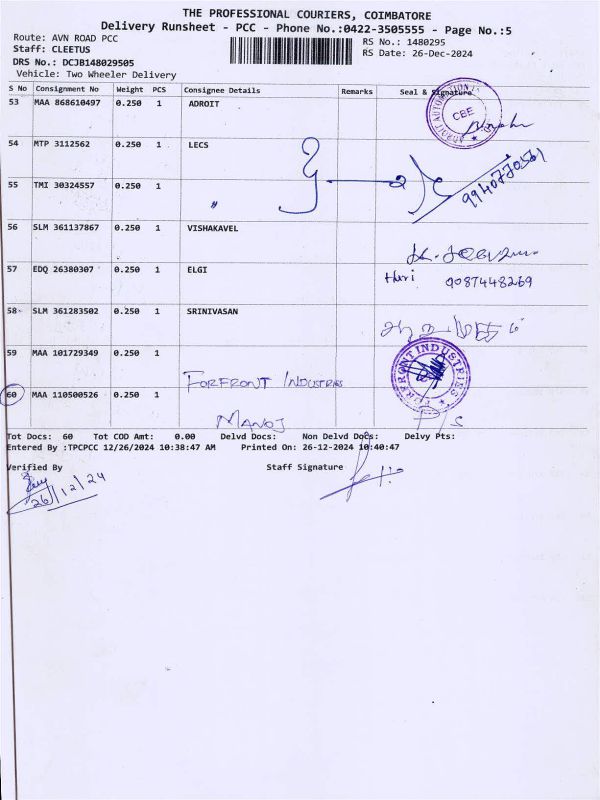 THE PROFESSIONAL COURIERS, COIMBATORE
Delivery Runsheet - PCC - Phone No.:0422-3505555 - Page No.:5
Route: AVN ROAD PCC RS No.: 1480295
Staff: CLEETUS RS Date: 26-Dec-2024
DRS No.: DCJB148029505
Vehicle: Two Wheeler Delivery
S No Consignment No Weight PCS Consignee Details Remarks Seal & Signature
53 MAA 868610497 0.250 1 ADROIT
CBE
54 MTP 3112562 0.250 1 LECS
55 TMI 30324557 0.250 1 "
9940770561
56 SLM 361137867 0.250 1 VISHAKAVEL
57 EDQ 26380307 0.250 1 ELGI
Hari 9087448269
58 SLM 361283502 0.250 1 SRINIVASAN
59 MAA 101729349 0.250 1
FORFRONT INDUSTRIES
FORFRONT INDUSTRIES
60 MAA 110500526 0.250 1
MANOJ
Tot Docs: 60 Tot COD Amt: 0.00 Delvd Docs: Non Delvd Docs: Delvy Pts:
Entered By :TPCPCC 12/26/2024 10:38:47 AM Printed On: 26-12-2024 10:40:47
Verified By Staff Signature
26/12/24